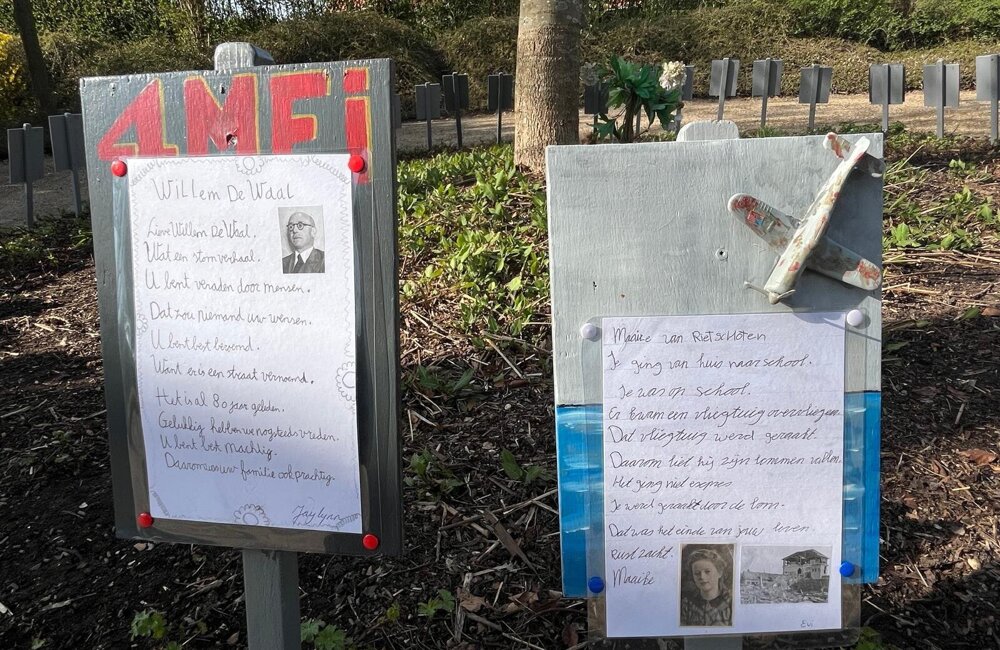 4 MEi
Willem De Waal
Lieve Willem De Waal.
Wat een stom verhaal.
U bent veraden door mensen.
Dat zou niemand uw wensen.
U bent best beroemd.
Want er is een straat vernoemd.
Het is al 80 jaar geleden.
Gelukkig hebben we nog steeds vreden.
U bent best machtig.
Daarom is uw familie ook prachtig.
Jaylynn
Maaike van Rietschoten
Je ging van huis naar school.
Je was op school.
Er kwam een vliegtuig overvliegen.
Dat vliegtuig werd geraakt.
Daarom liet hij zijn bommen vallen.
Het ging niet expres
Je werd geraakt door de bom.
Dat was het einde van jouw leven.
Rust zacht.
Maaike
Evi